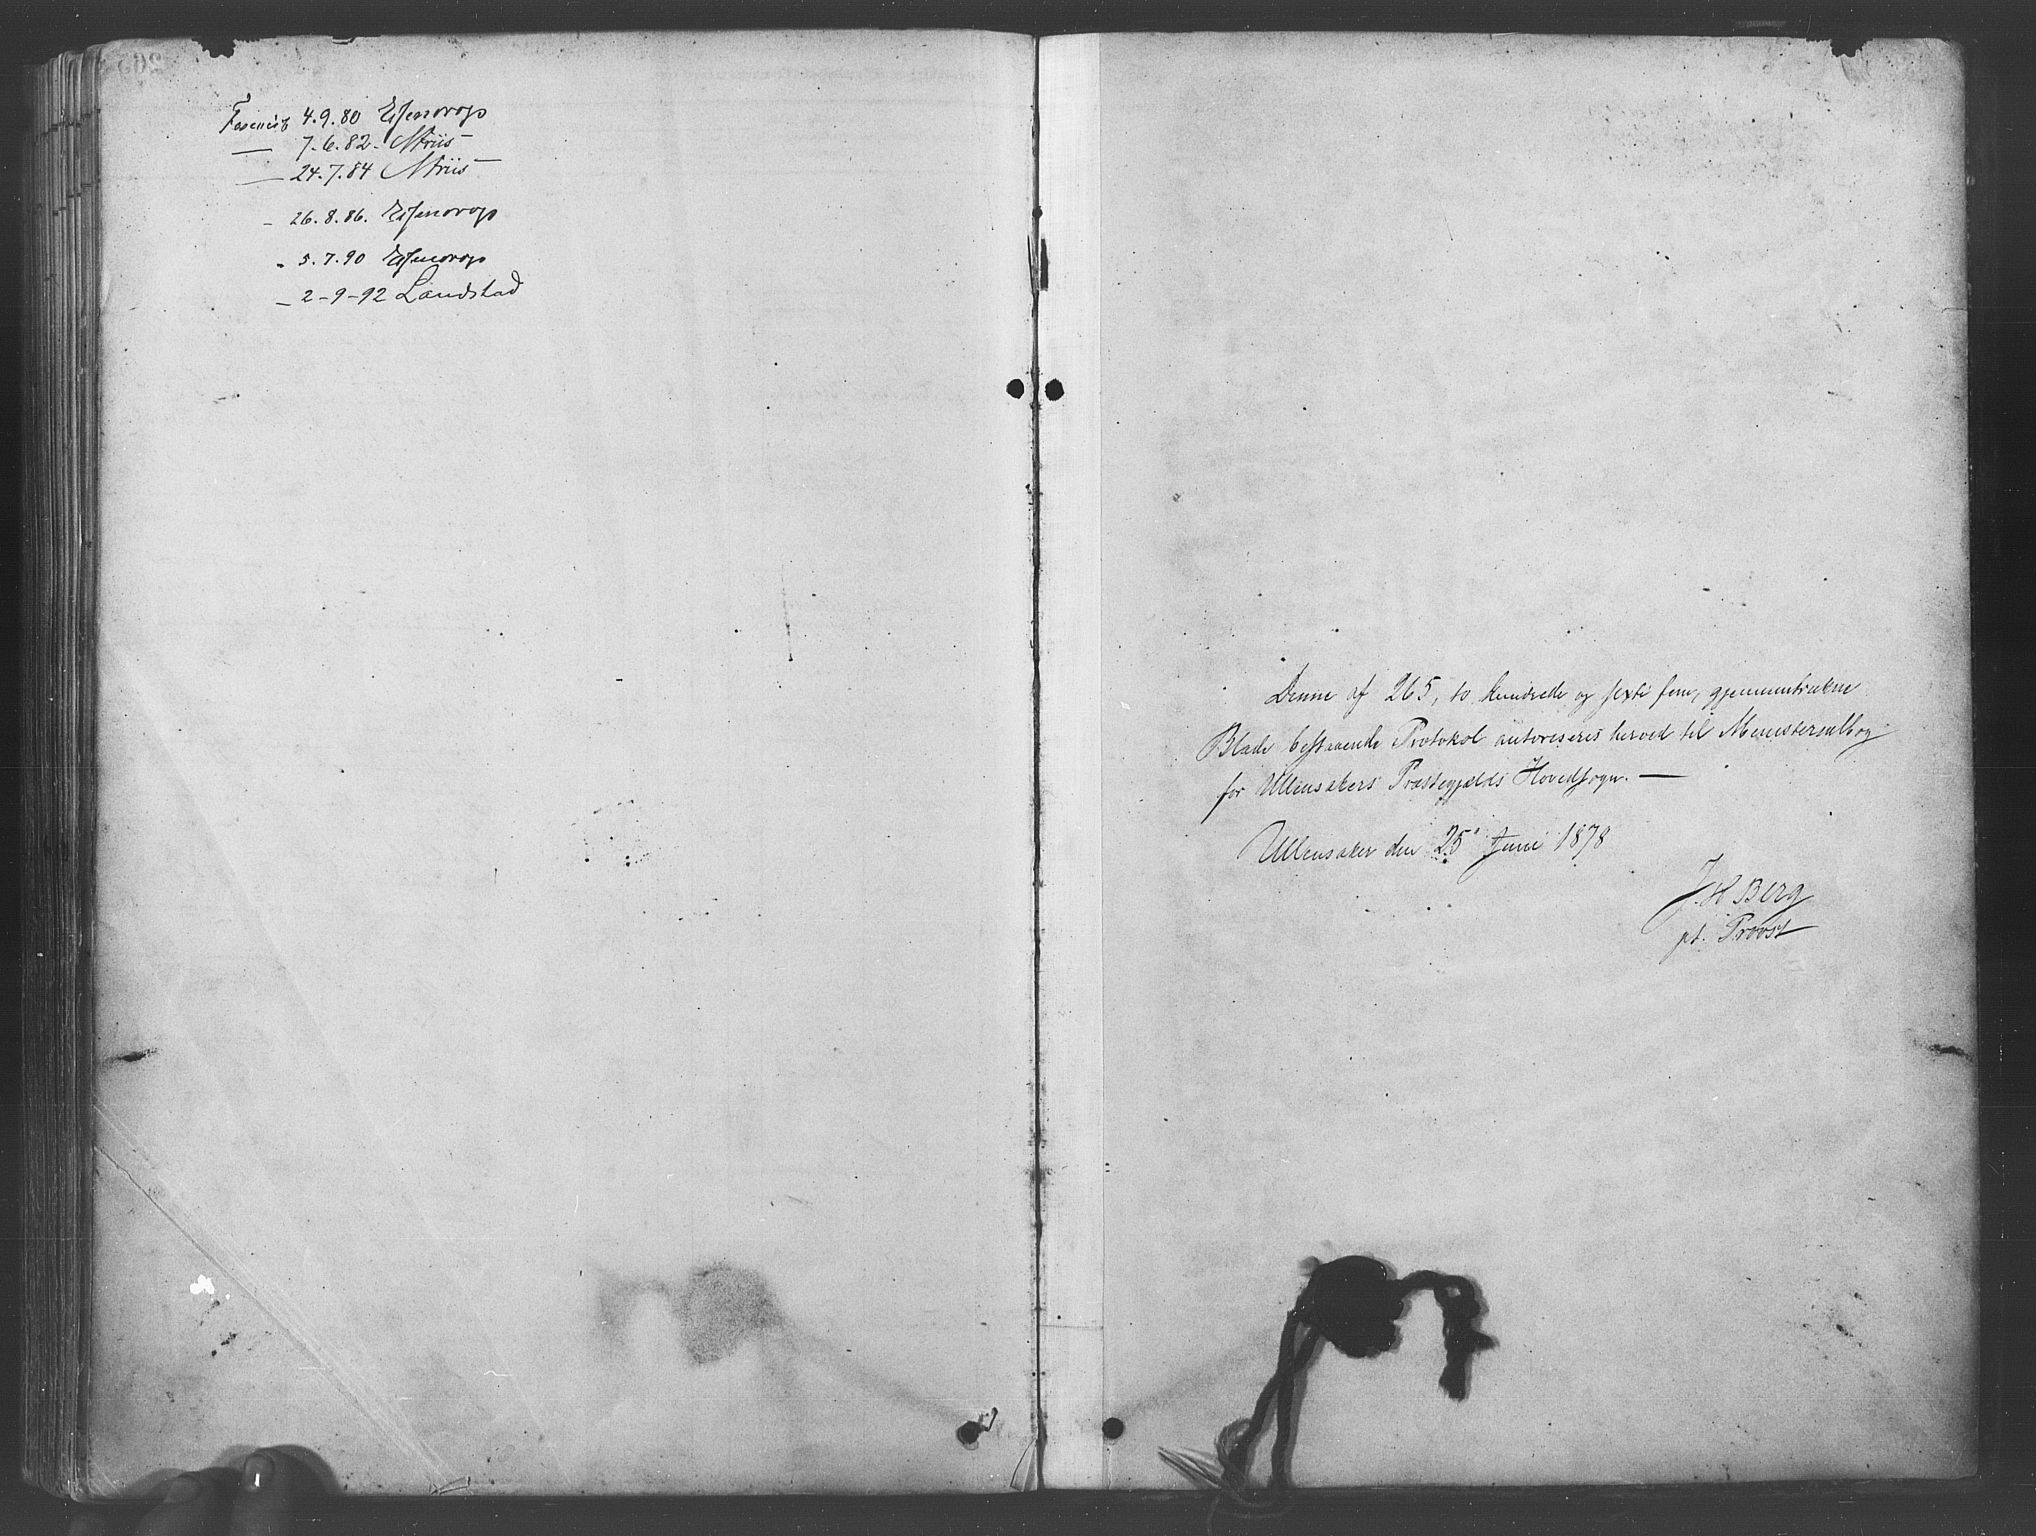 Foreviist 4.9.80 Essendrop
— 7.6.82 - NRiis
— 24.7.84 NRiis
- 26.8.86. Essendrop
- 5.7.90 Essendrop
- 2-9-92 Landstad
Denne af 265, to hundrede og sexti fem, gjennemtrukne
Blade bestaaende Protokol autoriseres herved til Ministerialbog
for Ullensakers Præstegjælds Hovedsogn. —
Ullensaker den 25' Juni 1878
J. H Berg
pt. Provst